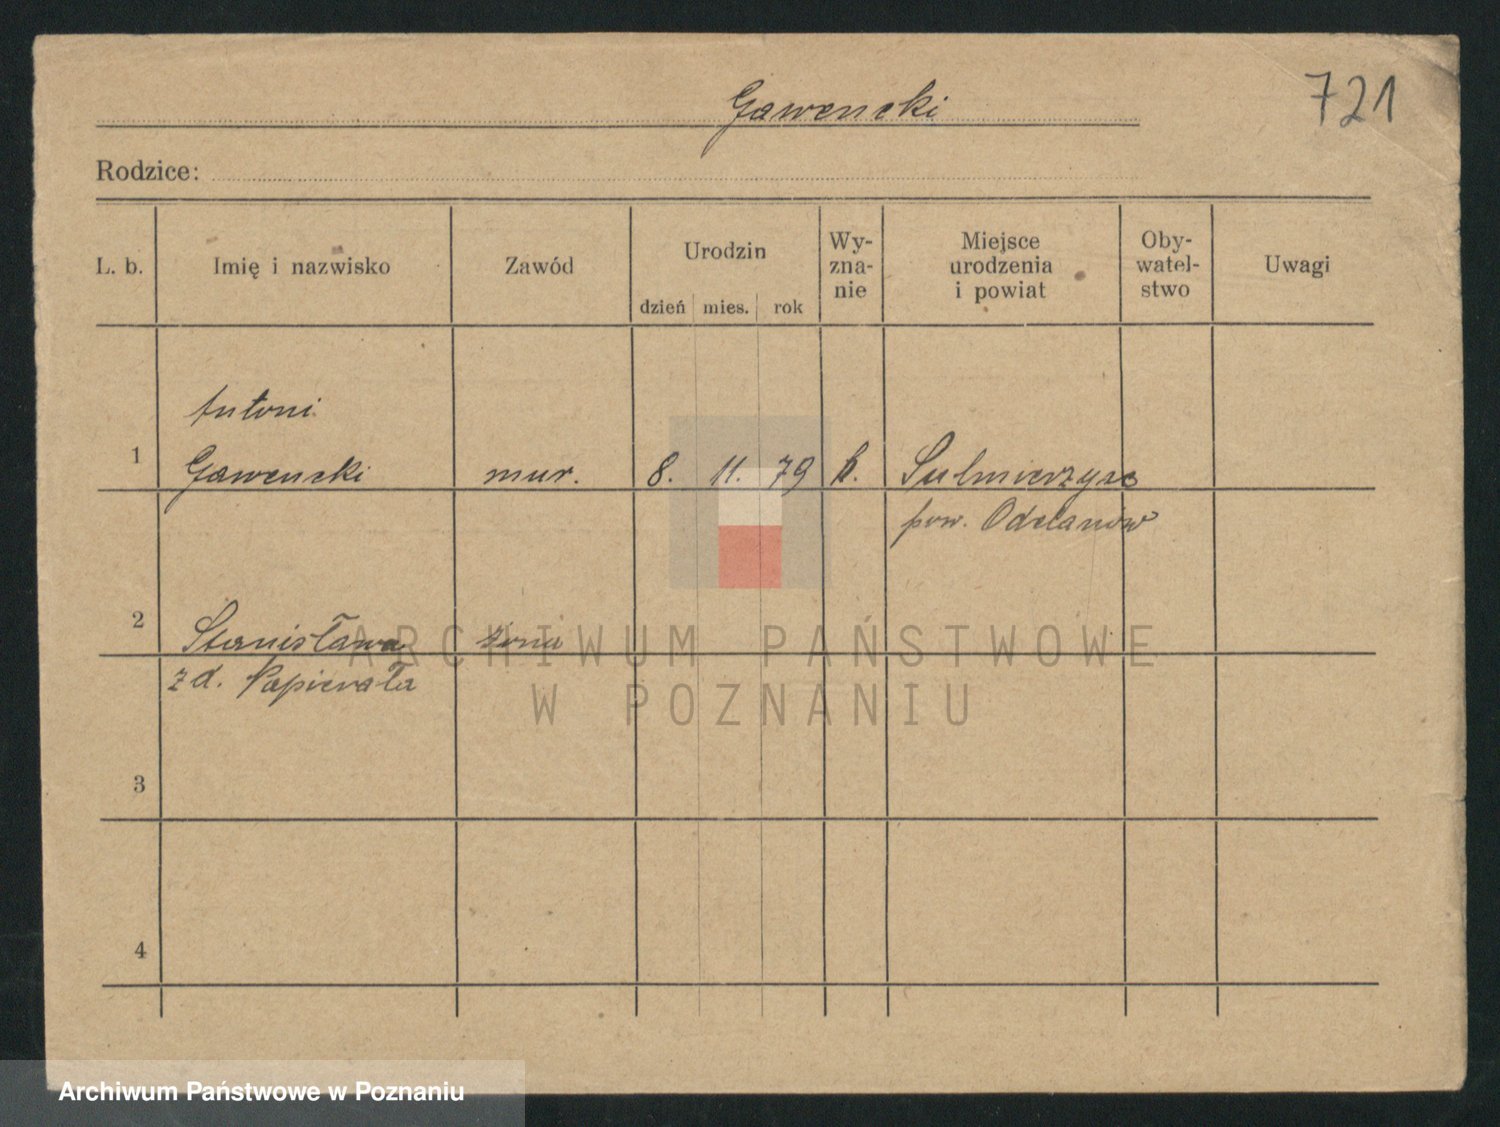 Gawencki
721
Rodzice:
L. b. Imię i nazwisko Zawód Urodzin dzień mies. rok Wy-zna-nie Miejsce urodzenia i powiat Oby-watel-stwo Uwagi
Antoni
1 Gawencki mur. 8. 11. 79 k. Sulmierzyce
pow. Odolanów
2 Stanisława żona
zd. Papierała
3
4
ARCHIWUM PAŃSTWOWE
W POZNANIU
Archiwum Państwowe w Poznaniu